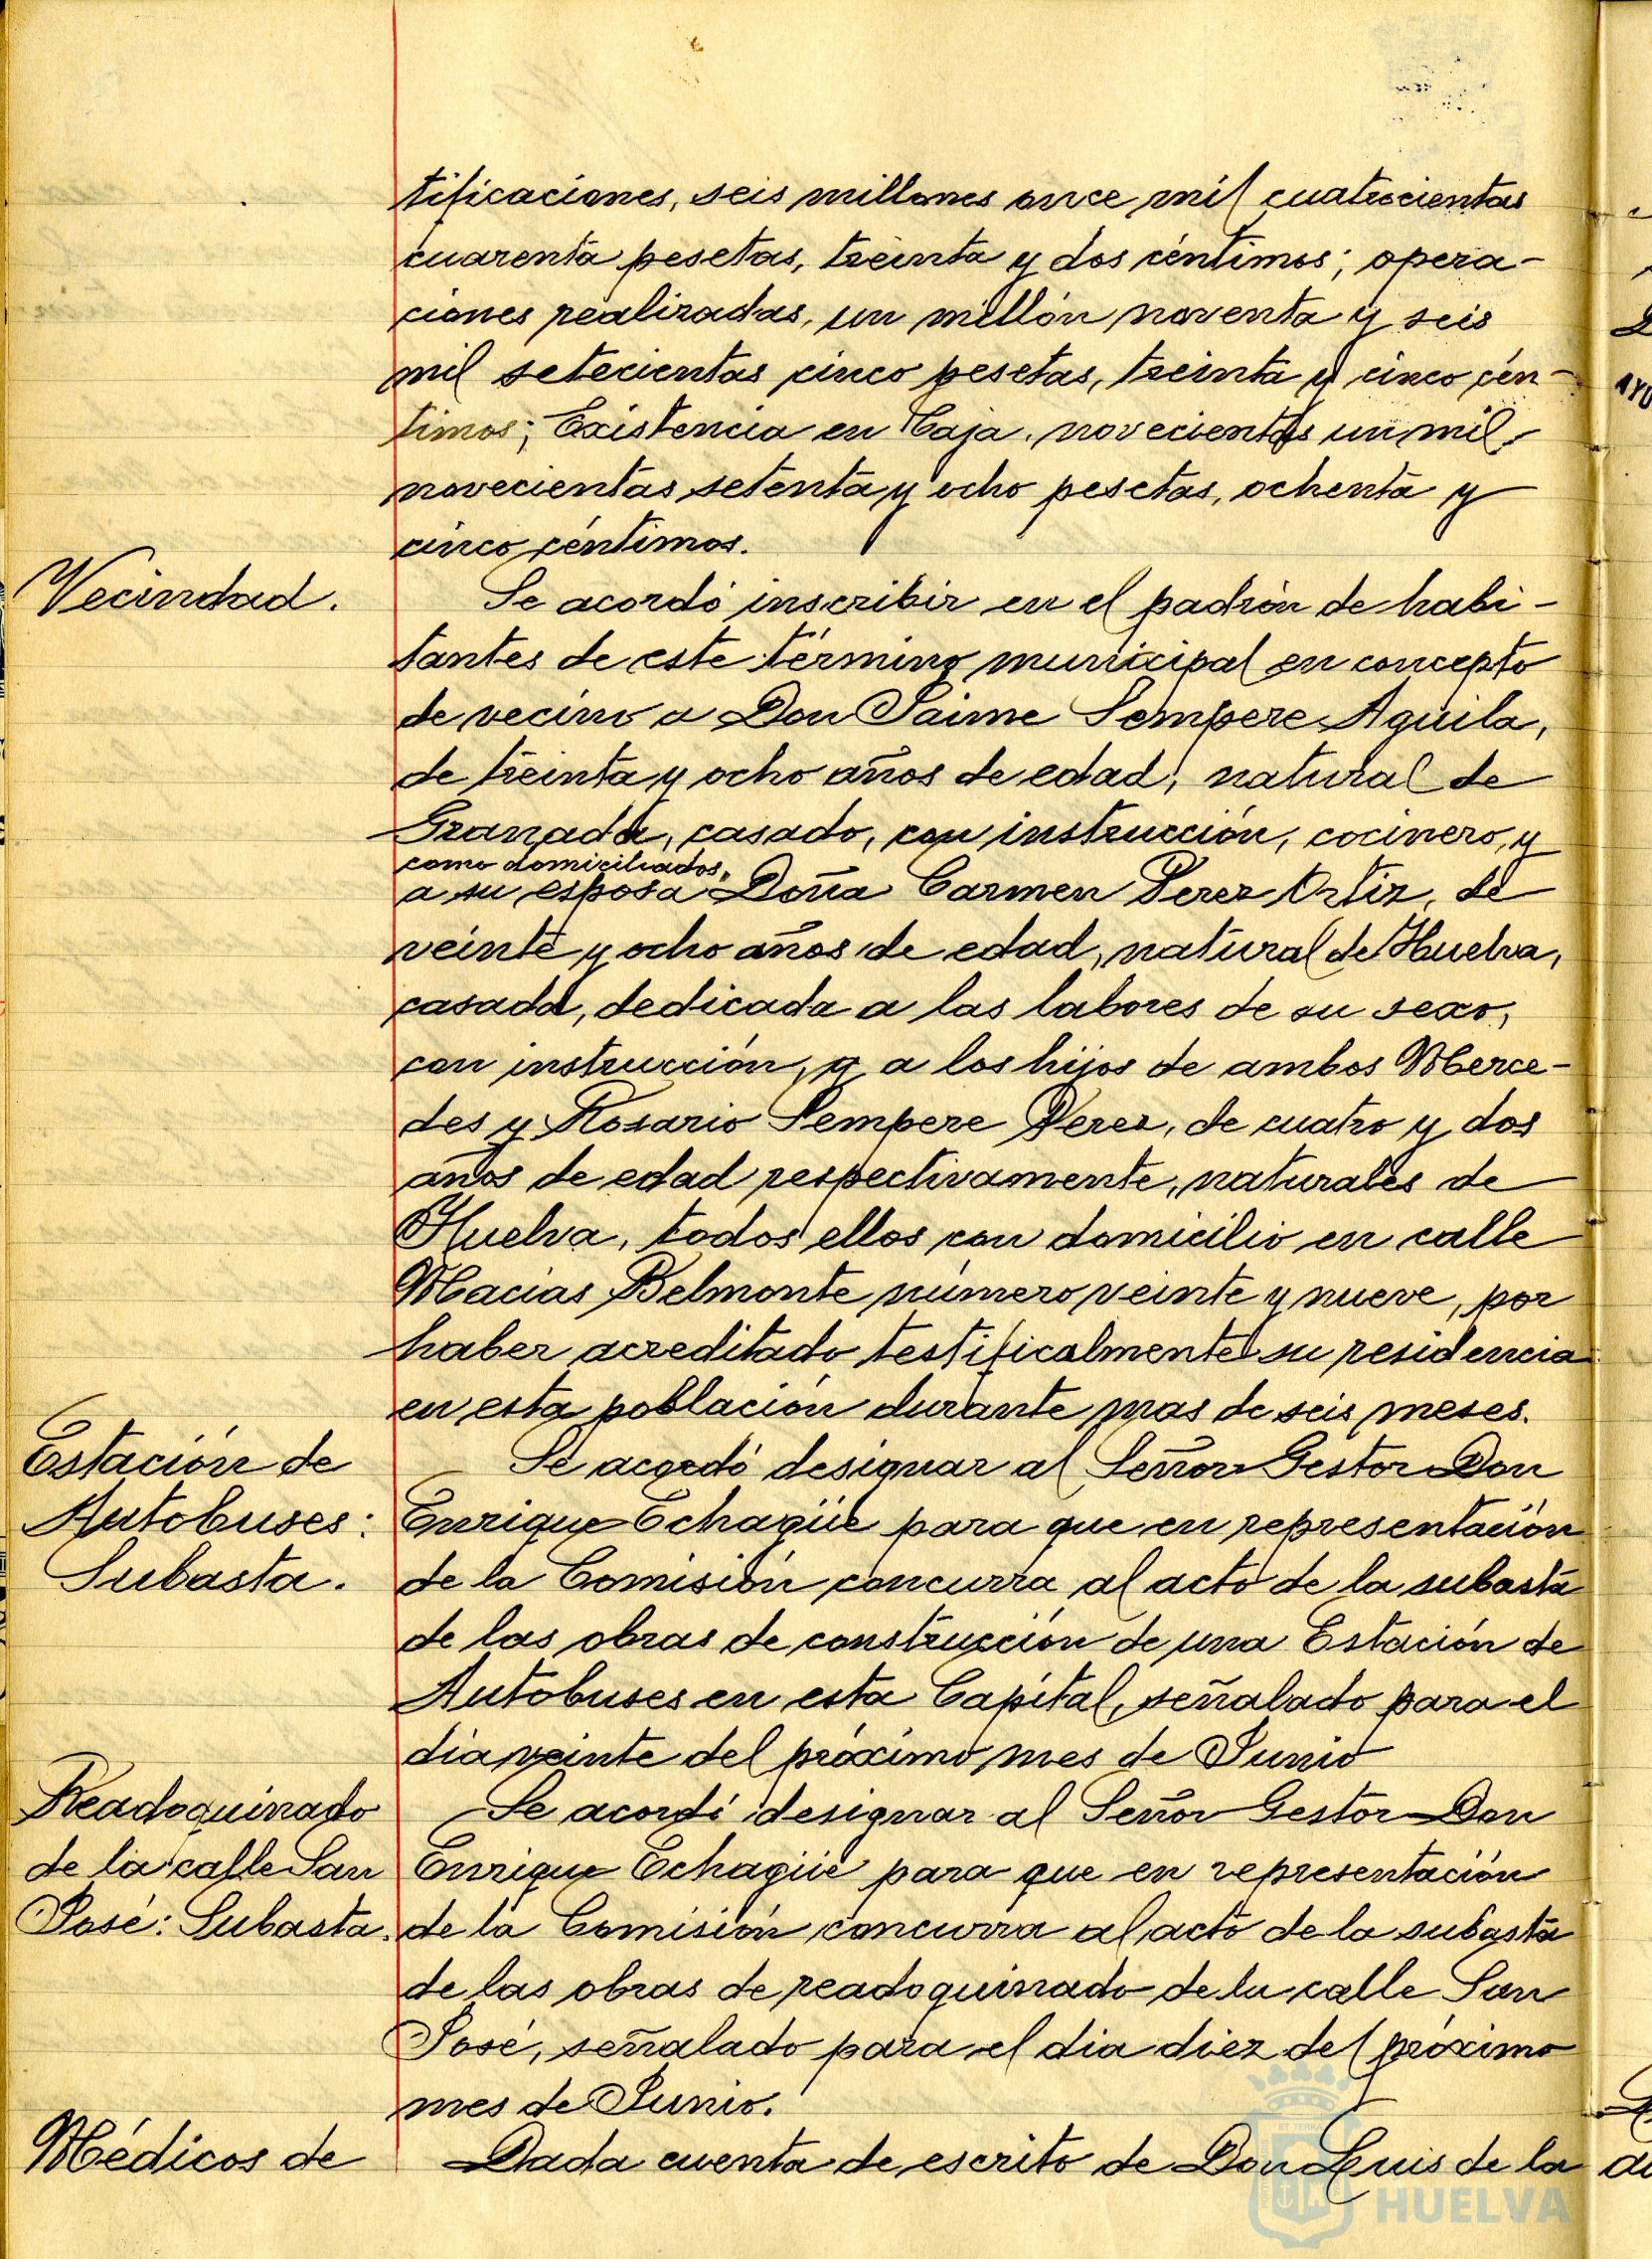 tificaciones, seis millones once mil cuatrocientas
cuarenta pesetas, treinta y dos céntimos; opera-
ciones realizadas, un millón noventa y seis
mil setecientas cinco pesetas, treinta y cinco cén-
timos; Existencia en Caja, novecientas un mil
novecientas setenta y ocho pesetas, ochenta y
cinco céntimos.
Vecindad.
Se acordó inscribir en el padrón de habi-
tantes de este término municipal en concepto
de vecino a Don Jaime Sempere Aguila,
de treinta y ocho años de edad, natural de
Granada, casado, con instrucción, cocinero, y
como domiciliados,
a su esposa Doña Carmen Perez Ortiz, de
veinte y ocho años de edad, natural de Huelva,
casada, dedicada a las labores de su sexo,
con instrucción, y a los hijos de ambos Merce-
des y Rosario Sempere Perez, de cuatro y dos
años de edad respectivamente, naturales de
Huelva, todos ellos con domicilio en calle
Macías Belmonte número veinte y nueve, por
haber acreditado testificalmente su residencia
en esta población durante mas de seis meses.
Estación de
Autobuses:
Subasta.
Se acordó designar al Señor Gestor Don
Enrique Echagüe para que en representación
de la Comisión concurra al acto de la subasta
de las obras de construcción de una Estación de
Autobuses en esta Capital, señalado para el
dia veinte del próximo mes de Junio
Readoquinado
de la calle San
José: Subasta.
Se acordó designar al Señor Gestor Don
Enrique Echagüe para que en representación
de la Comisión concurra al acto de la subasta
de las obras de readoquinado de la calle San
José, señalado para el dia diez del próximo
mes de Junio.
Médicos de
Dada cuenta de escrito de Don Luis de la
HUELVA